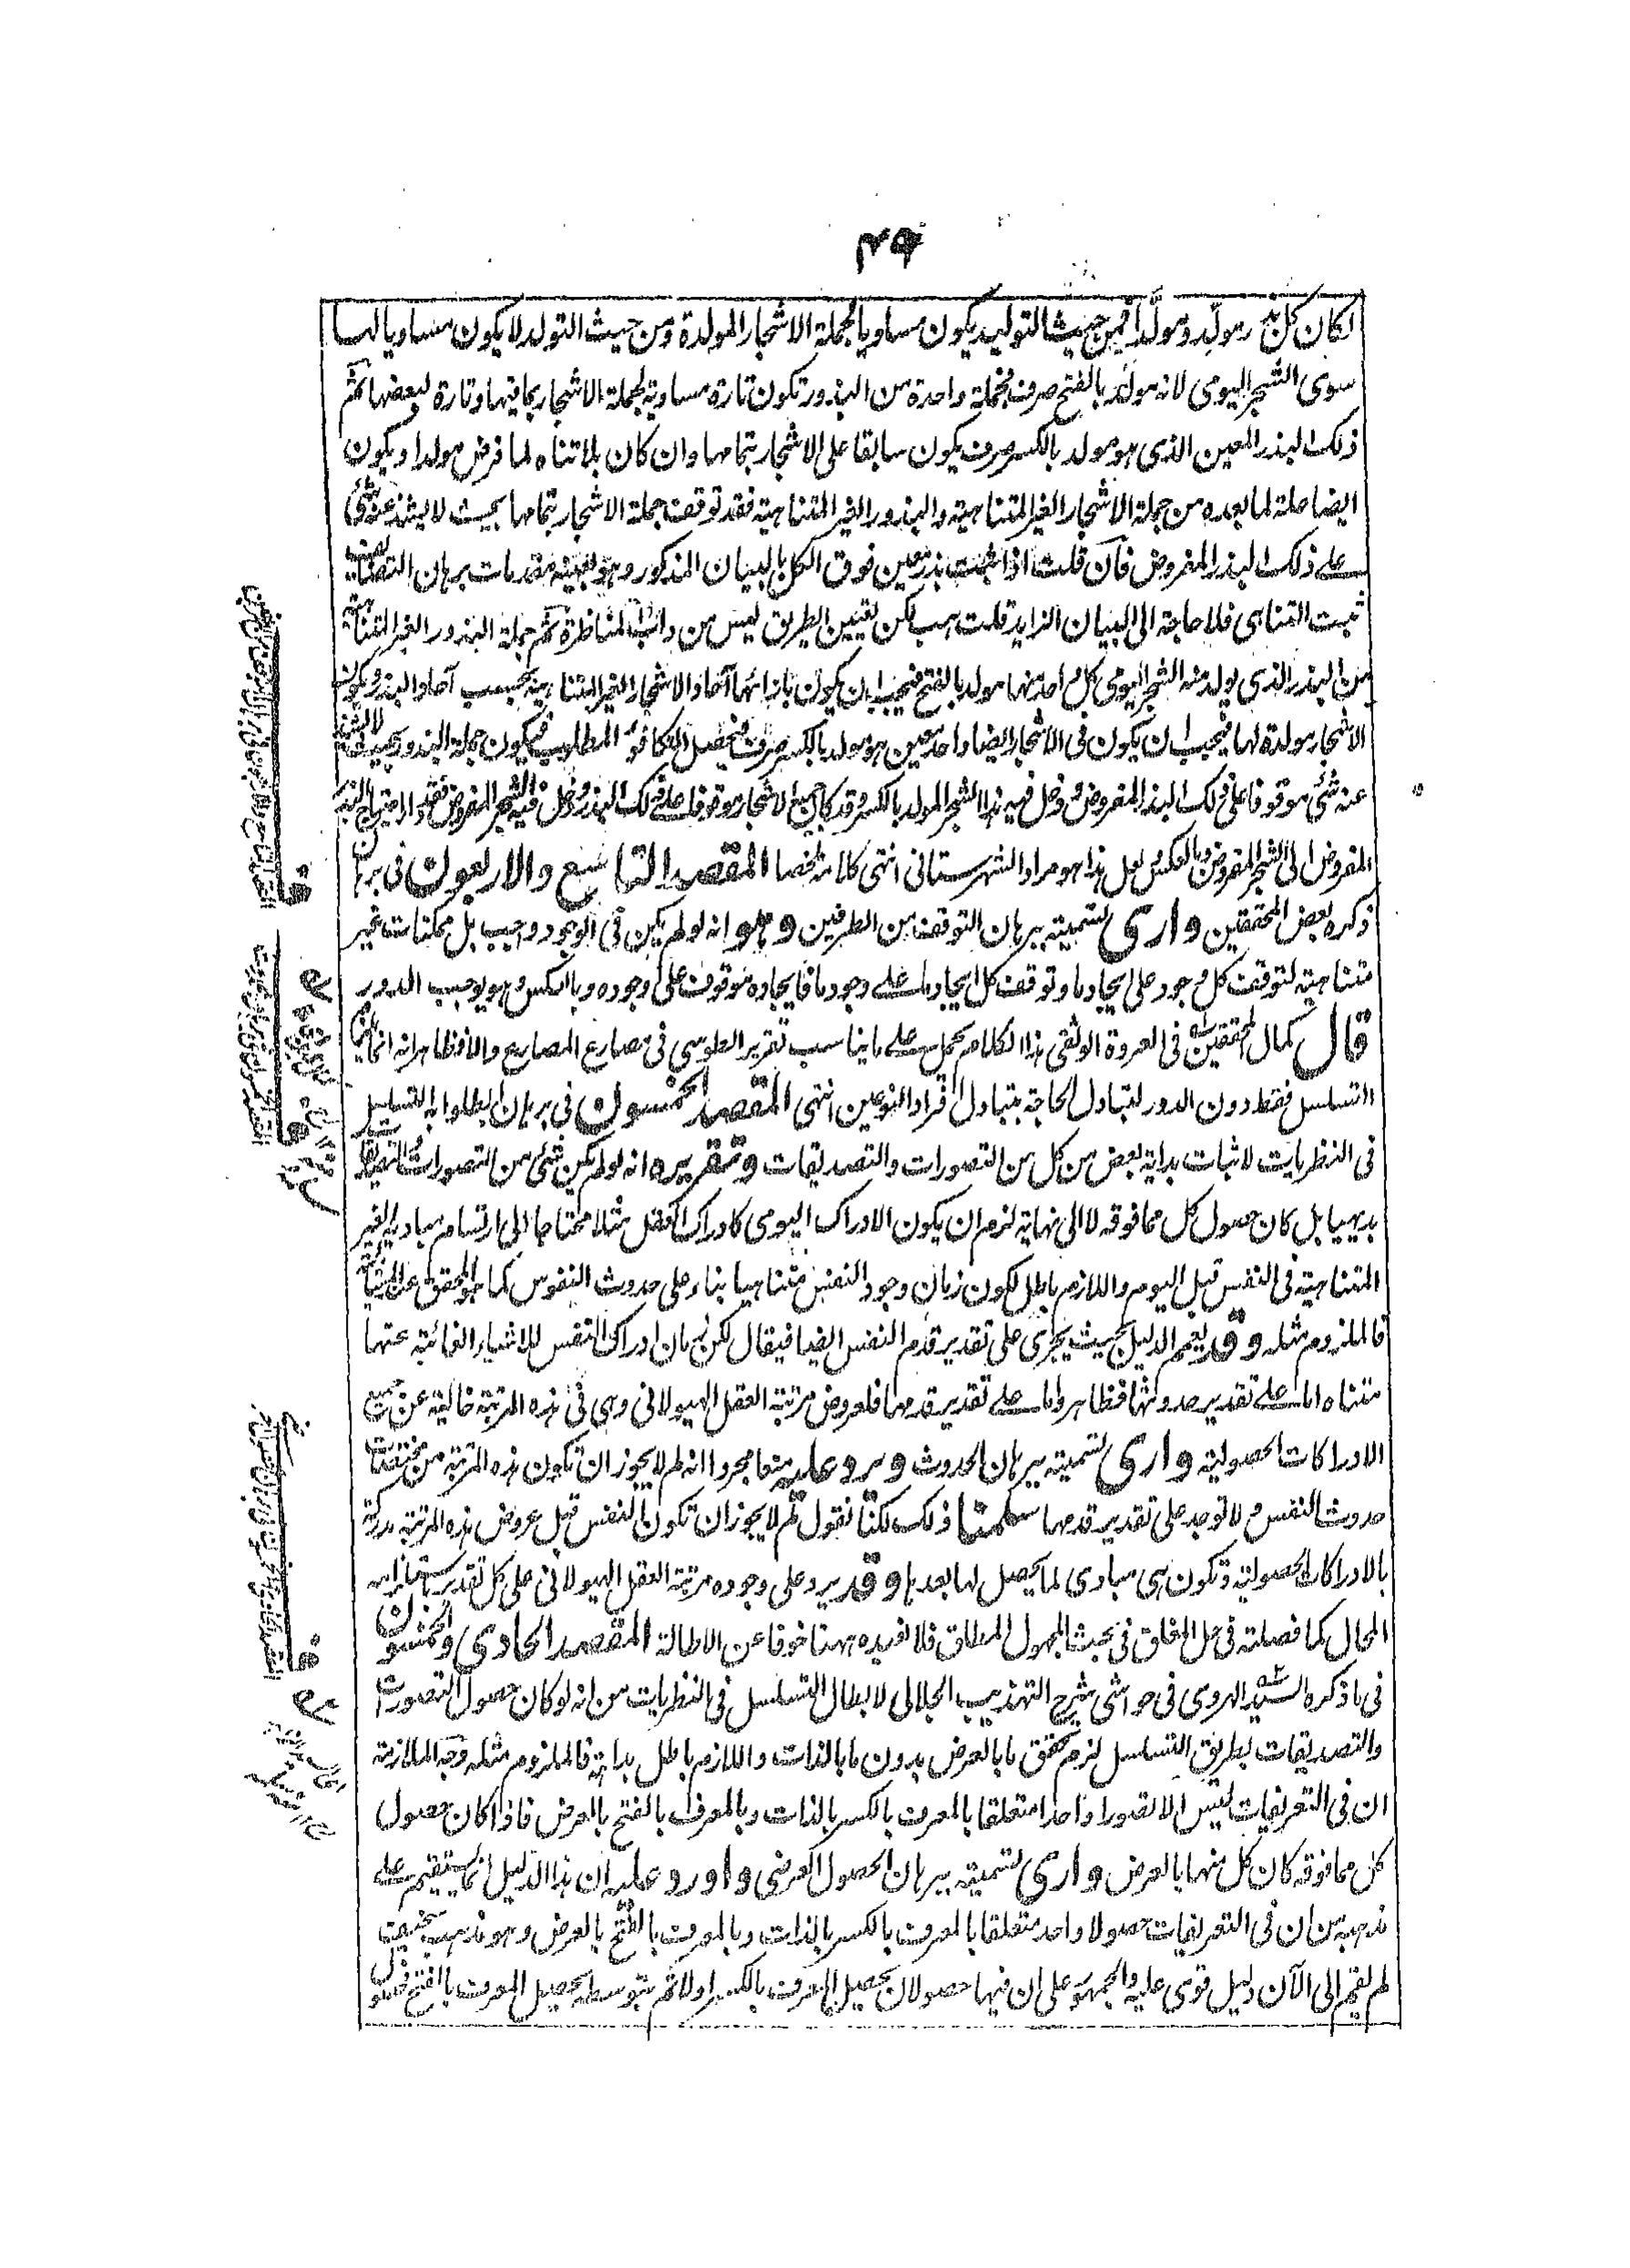 ٤٦
لكان كل بذر مولِّد ومولَّدا فمن حيث التوليد يكون مساويا لجملة الاشجار المولدة ومن حيث التولد لا يكون مساويا لها
سوى الشجر اليومى لانه مولد بالفتح صرف فجملة واحدة من البذور تكون تارة مساوية لجملة الاشجار بما فيها وتارة لبعضها ثم
ذلك البذر المعين الذى هو مولد بالكسر صرف يكون سابقا على الاشجار بتمامها وان كان بلا تناه لما فرض مولدا ويكون
ايضا علة لما بعده من جملة الاشجار الغير المتناهية والبذور الغير المتناهية فقد توقف جملة الاشجار بتمامها بحيث لا يشذ عنه شئ
على ذلك البذر المفروض فان قلت اذا ثبت بذر معين فوق الكل بالبيان المذكور وهو بعينه مقدمات برهان التضايف
ثبت التناهى فلا حاجة الى البيان الزايد قلت هب لكن تعيين الطريق ليس من داب المناظرة ثم جملة البذور الغير المتناهية
من البذر الذى يولد منه الشجر اليومى كل واحد منها مولد بالفتح فيجب ان يكون بازائها آحاد الاشجار الغير المتناهية بحسب آحاد البذر ويكون
الاشجار مولدة لها فيجب ان يكون فى الاشجار ايضا واحد معين هو مولد بالكسر صرف فيحصل التكافؤ المطلوب فيكون جملة البذور بحيث لا يشذ
عنه شئ موقوفا على ذلك البذر المفروض ودخل فيه هذا الشجر المولد بالكسر وقد كان جميع الاشجار موقوفا على ذلك البذر ودخل فيه الشجر المفروض فقد دار احتياج البذر
المفروض الى الشجر المفروض وبالعكس لعل هذا هو مراد الشهرستانى انتهى كلامه ملخصا المقصد التاسع والاربعون فى برهان
ذكره بعض المحققين وارى تسميته ببرهان التوقف من الطرفين وهو انه لو لم يكن فى الوجود واجب بل ممكنات غير
متناهية لتوقف كل موجود على ايجاد ما وتوقف كل ايجاد ما على وجود ما فايجاده موقوف على وجوده وبالعكس وهو يوجب الدور
قال كمال المحققين فى العروة الوثقى هذا الكلام محمل على ما يناسب تقرير الطوسى فى مصارع المصارع والا فظاهر انه انما يلزم
التسلسل فقط دون الدور لتبادل الحاجة بتبادل افراد النوعين انتهى المقصد الخمسون فى برهان ابطلوا به التسلسل
فى النظريات لاثبات بداهة بعض من كل من التصورات والتصديقات وتقريره انه لو لم يكن شئ من التصورات والتصديقات
بديهيا بل كان حصول كل مما فوقه لا الى نهاية لزم ان يكون الادراك اليومى كادراك العقل مثلا محتاجا الى ارتسام مباديه الغير
المتناهية فى النفس قبل اليوم واللازم باطل لكون زمان وجود النفس متناهيا بناء على حدوث النفوس كما هو المحقق عند المشائية
فالملزوم مثله وقد يعمم الدليل بحيث يجرى على تقدير قدم النفس ايضا فيقال لكن زمان ادراك النفس للاشياء الغائبة عنها
متناه اما على تقدير حدوثها فظاهر واما على تقدير قدمها فلعروض مرتبة العقل الهيولانى وهى فى هذه المرتبة خالية عن جميع
الادراكات الحصولية وارى تسميته ببرهان الحدوث ويرد عليه منعا مجردا انه لم لا يجوز ان تكون هذه المرتبة من مختصات
حدوث النفس ولا توجد على تقدير قدمها سلمنا ذلك لكنا نقول لم لا يجوز ان تكون النفس قبل عروض هذه المرتبة مدركة
بالادراكات الحصولية وتكون هى مبادى لما يحصل لها بعدها وقد يرد على وجوده مرتبة العقل الهيولانى على كل تقدير باستلزامه
المحال كما فصلته فى حل المغلق فى بحث المجهول المطلق فلا نعيده ههنا خوفا عن الاطالة المقصد الحادى والخمسون
فى ما ذكره السيد الهروى فى حواشى شرح التهذيب الجلالى لابطال التسلسل فى النظريات من انه لو كان حصول التصورات
والتصديقات بطريق التسلسل لزم تحقق ما بالعرض بدون ما بالذات واللازم باطل بداهة فالملزوم مثله وجه الملازمة
ان فى التعريفات ليس الا تصورا واحدا متعلقا بالمعرف بالكسر بالذات وبالمعرف بالفتح بالعرض فاذا كان حصول
كل مما فوقه كان كل منها بالعرض وارى تسميته ببرهان الحصول العرضى واورد عليه ان هذا الدليل انما يستقيم على
مذهبه من ان فى التعريفات حصولا واحد متعلقا بالمعرف بالكسر بالذات وبالمعرف بالفتح بالعرض وهو مذهب سخيف
لم يقم الى الآن دليل قوى عليه والجمهور على ان فيها حصولان يحصل المعرف بالكسر اولا ثم بتوسطه يحصل المعرف بالفتح فحصول